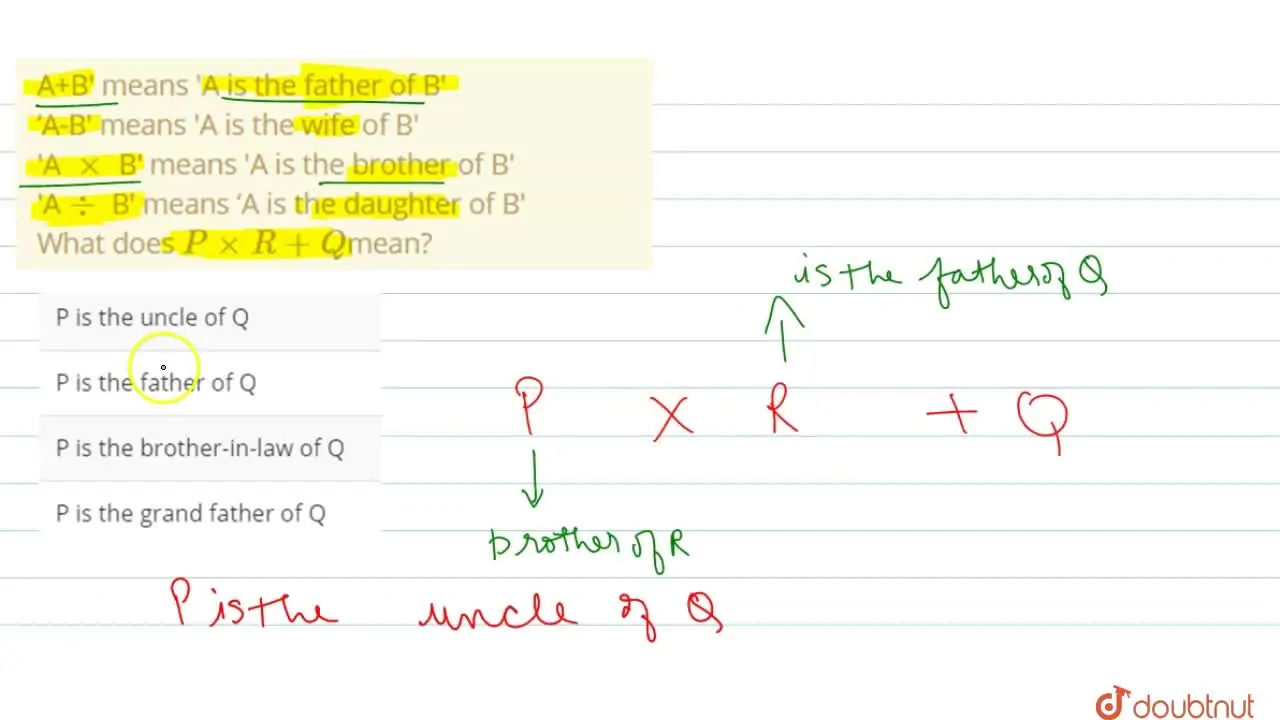 A+B' means 'A is the father of B'
'A-B' means 'A is the wife of B'
'A × B' means 'A is the brother of B'
'A ÷ B' means ‘A is the daughter of B'
What does P × R + Q mean?
P is the uncle of Q
P is the father of Q
P is the brother-in-law of Q
P is the grand father of Q
is the father of Q
P × R + Q
brother of R
P is the uncle of Q
doubtnut